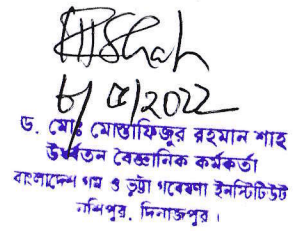 ৬/৫/২০২২
ড. মোঃ মোস্তাফিজুর রহমান শাহ
উর্ধ্বতন বৈজ্ঞানিক কর্মকর্তা
বাংলাদেশ গম ও ভুট্টা গবেষণা ইনস্টিটিউট
নশিপুর, দিনাজপুর।